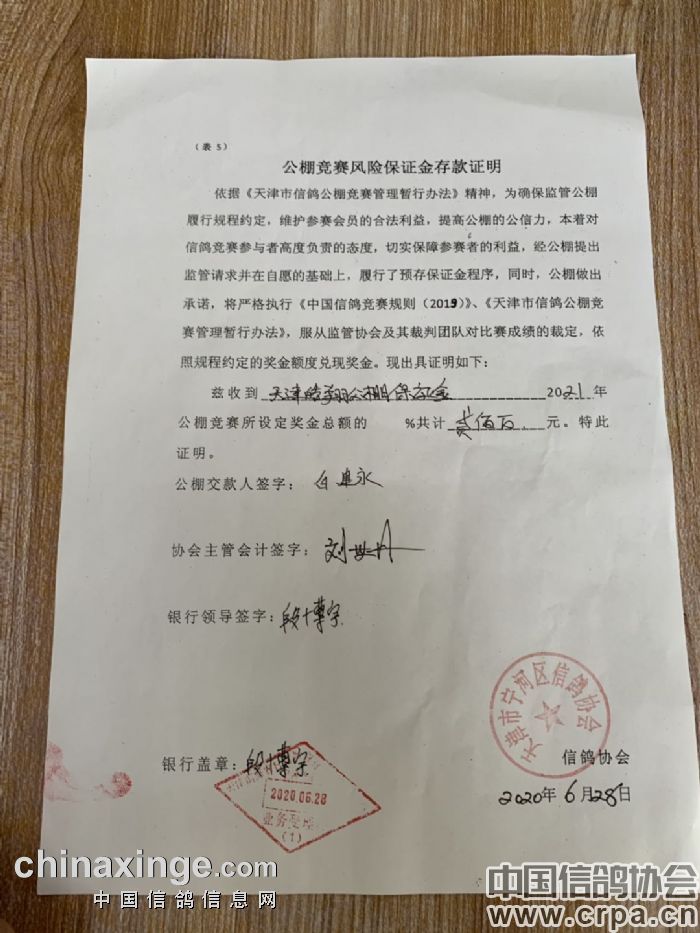 （表 5）
公棚竞赛风险保证金存款证明
依据《天津市信鸽公棚竞赛管理暂行办法》精神，为确保监管公棚
履行规程约定，维护参赛会员的合法利益，提高公棚的公信力，本着对
信鸽竞赛参与者高度负责的态度，切实保障参赛者的利益，经公棚提出
监管请求并在自愿的基础上，履行了预存保证金程序，同时，公棚做出
承诺，将严格执行《中国信鸽竞赛规则（2019）》、《天津市信鸽公棚竞
赛管理暂行办法》，服从监管协会及其裁判团队对比赛成绩的裁定，依
照规程约定的奖金额度兑现奖金。现出具证明如下：
兹收到 天津 翔公棚保证金 2021年
公棚竞赛所设定奖金总额的 %共计 贰佰万 元。特此
证明。
公棚交款人签字：白 永
协会主管会计签字：刘
银行领导签字：段博宇
天津市宁河区信鸽协会
银行盖章：段博宇
信鸽协会
2020年6月28日
2020.06.28
业务受理
（1）
chinaxinge.com
中国信鸽信息网
中国信鸽协会
www.crpa.cn